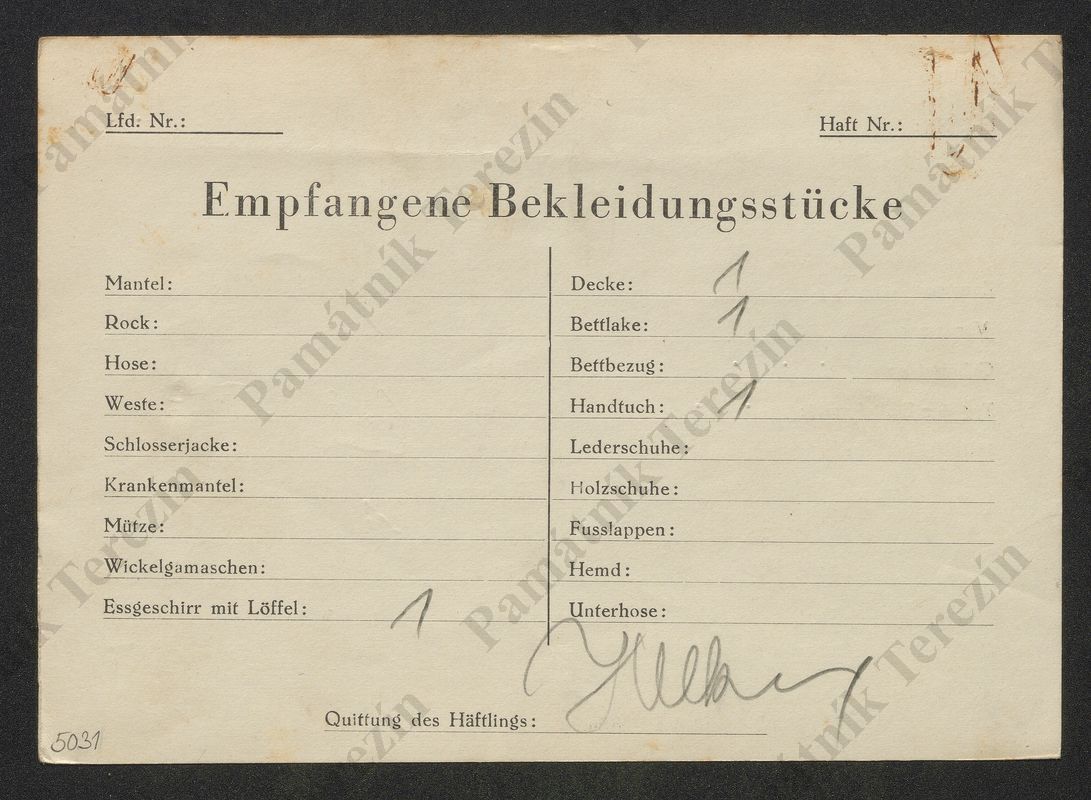 Lfd. Nr.:
Haft Nr.:
Empfangene Bekleidungsstücke
Mantel:
Rock:
Hose:
Weste:
Schlosserjacke:
Krankenmantel:
Mütze:
Wickelgamaschen:
Essgeschirr mit Löffel: 1
Decke: 1
Bettlake: 1
Bettbezug:
Handtuch: 1
Lederschuhe:
Holzschuhe:
Fusslappen:
Hemd:
Unterhose:
Quittung des Häftlings:
5031
Památník Terezín
Památník Terezín
Památník Terezín
Památník Terezín